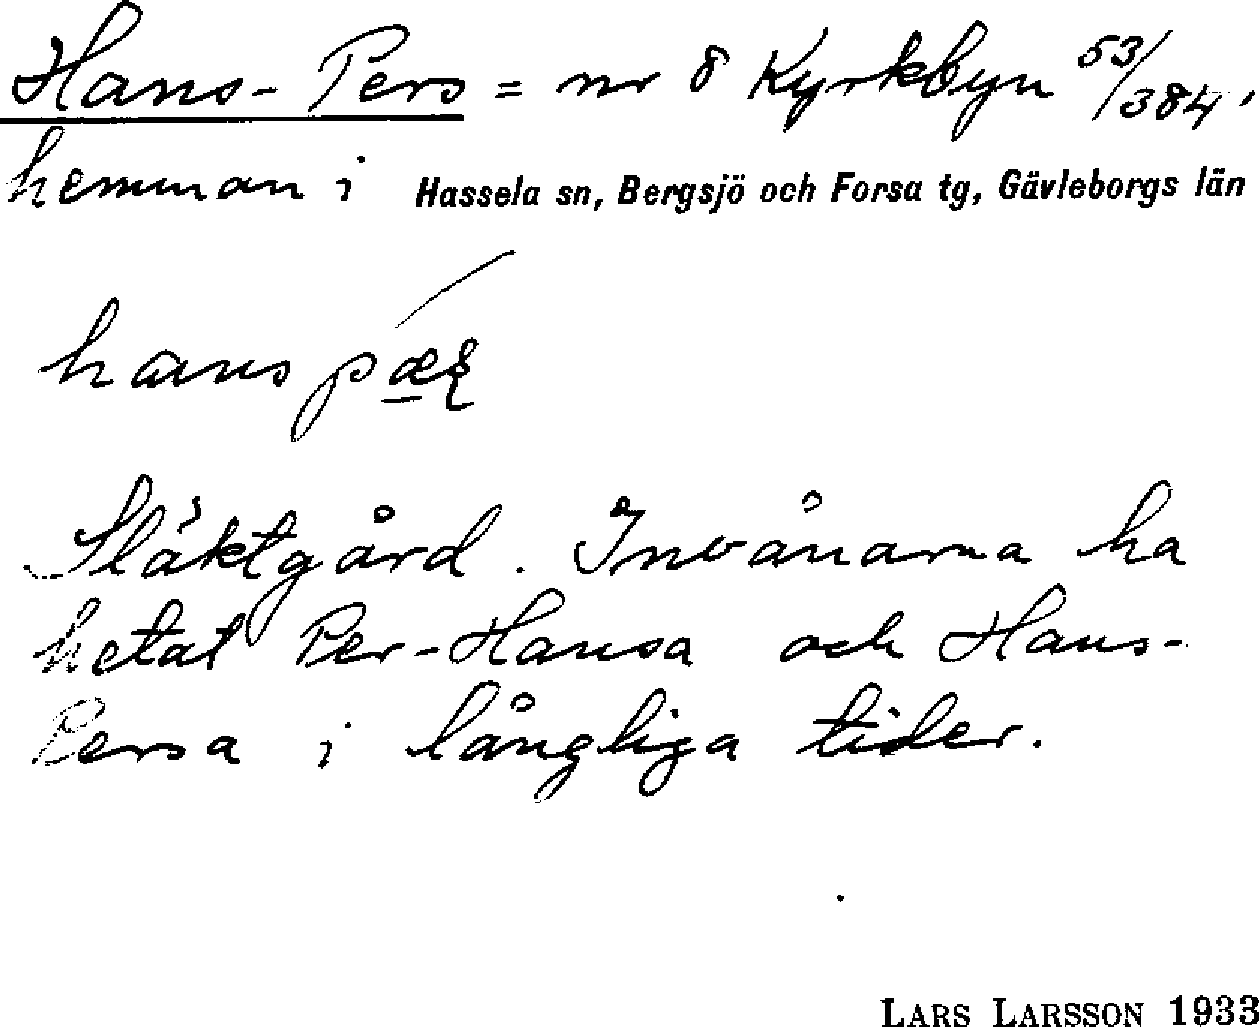 Hans-Pers = nr 8 Kyrkbyn 53/384,
hemman i Hassela sn, Bergsjö och Forsa tg, Gävleborgs län
Släktgård. Invånarna ha
hetat Per-Hansa och Hans-
Persa i långliga tider.
LARS LARSSON 1933